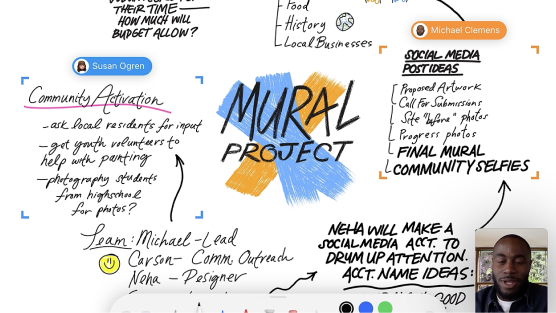 THEIR TIME —
HOW MUCH WILL
BUDGET ALLOW?
- Food
- History
- Local Businesses
Susan Ogren
Community Activation
- ask local residents for input
- got youth volunteers to
help with painting
- photography students
from highschool
for photos?
MURAL
PROJECT
Michael Clemens
SOCIAL MEDIA
POST IDEAS
Proposed Artwork
Call For Submissions
Site "before" photos
Progress photos
FINAL MURAL
COMMUNITY SELFIES
Team: Michael - Lead
Carson - Comm. Outreach
Neha - Designer
NEHA WILL MAKE A
SOCIAL MEDIA ACCT. TO
DRUM UP ATTENTION.
ACCT. NAME IDEAS: